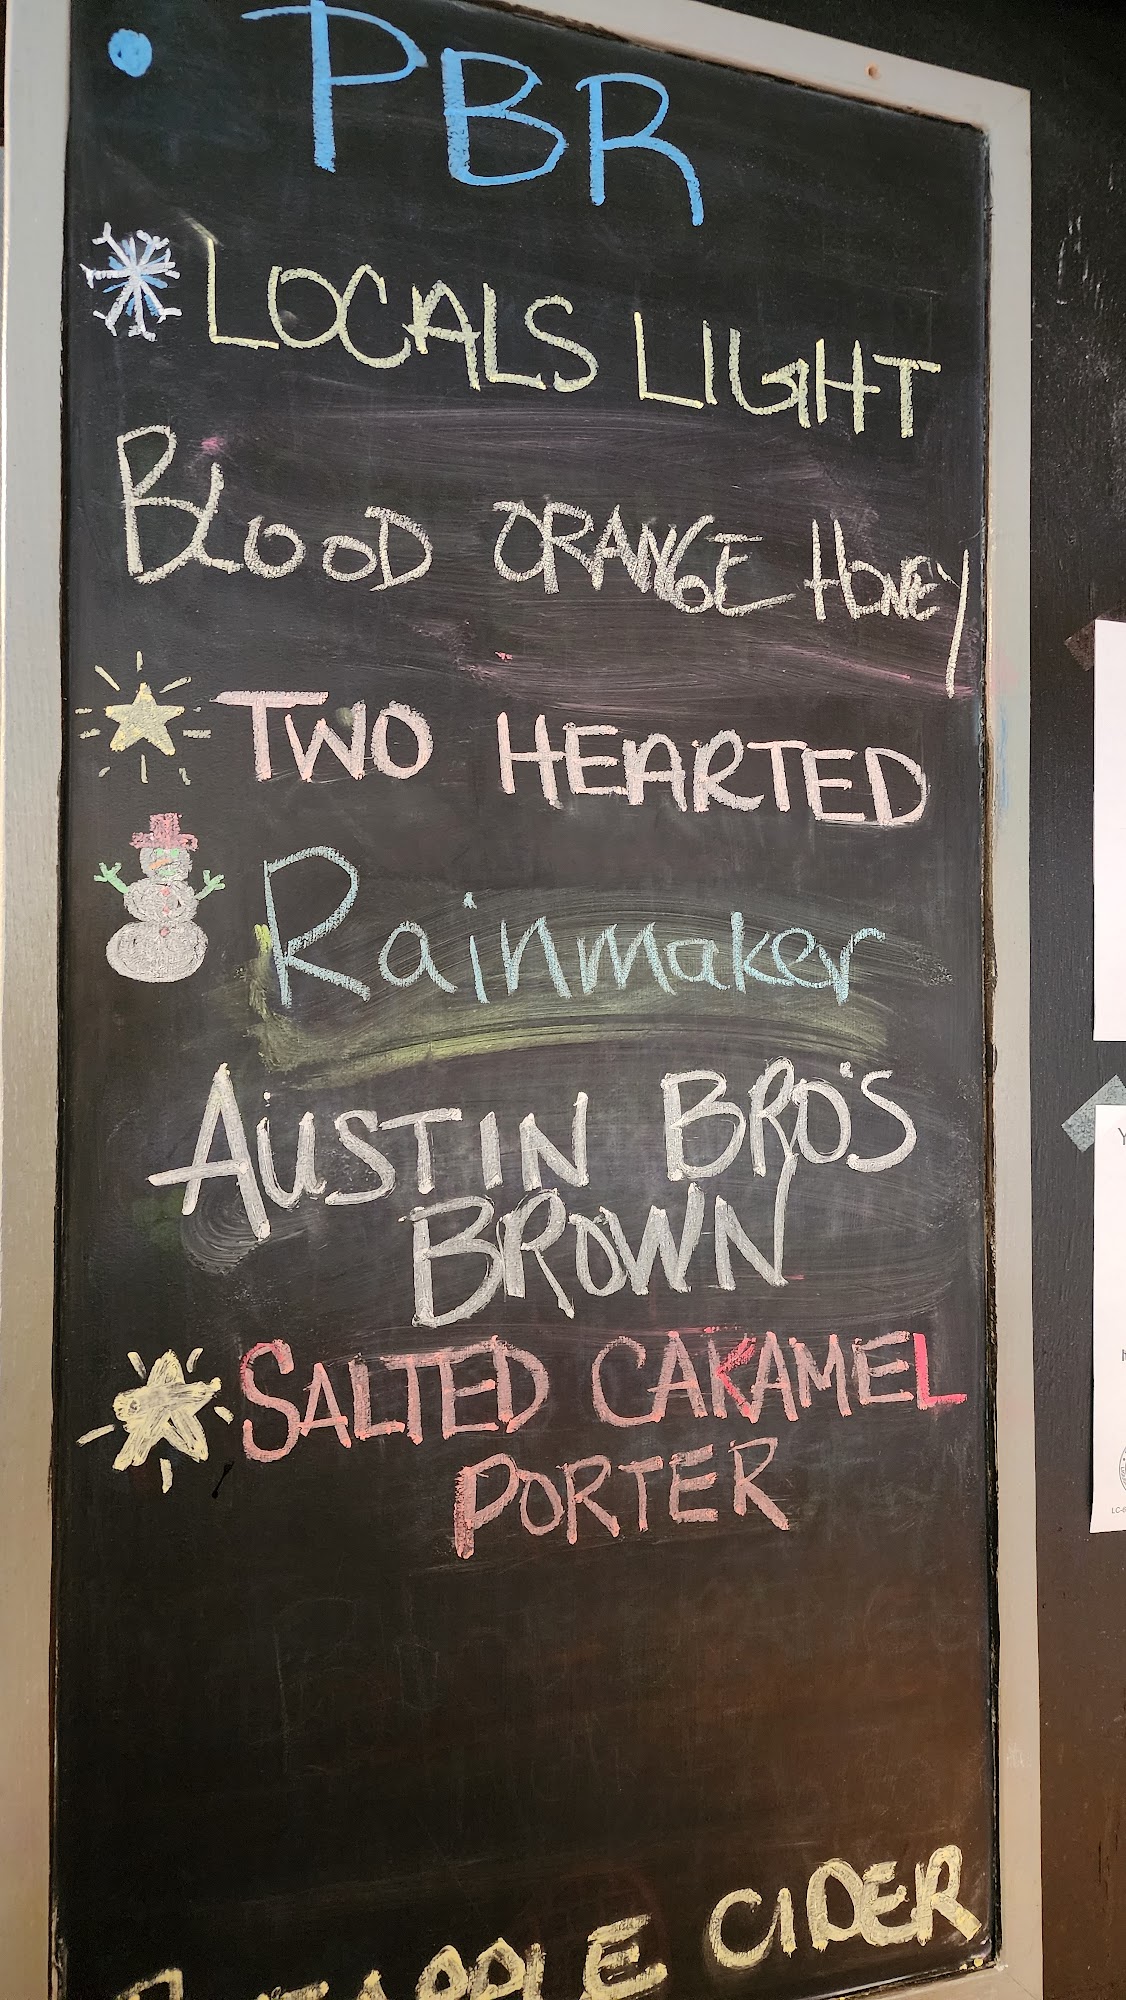 PBR
LOCALS LIGHT
BLOOD ORANGE HONEY
TWO HEARTED
Rainmaker
AUSTIN BRO'S
BROWN
SALTED CARAMEL
PORTER
CIDER